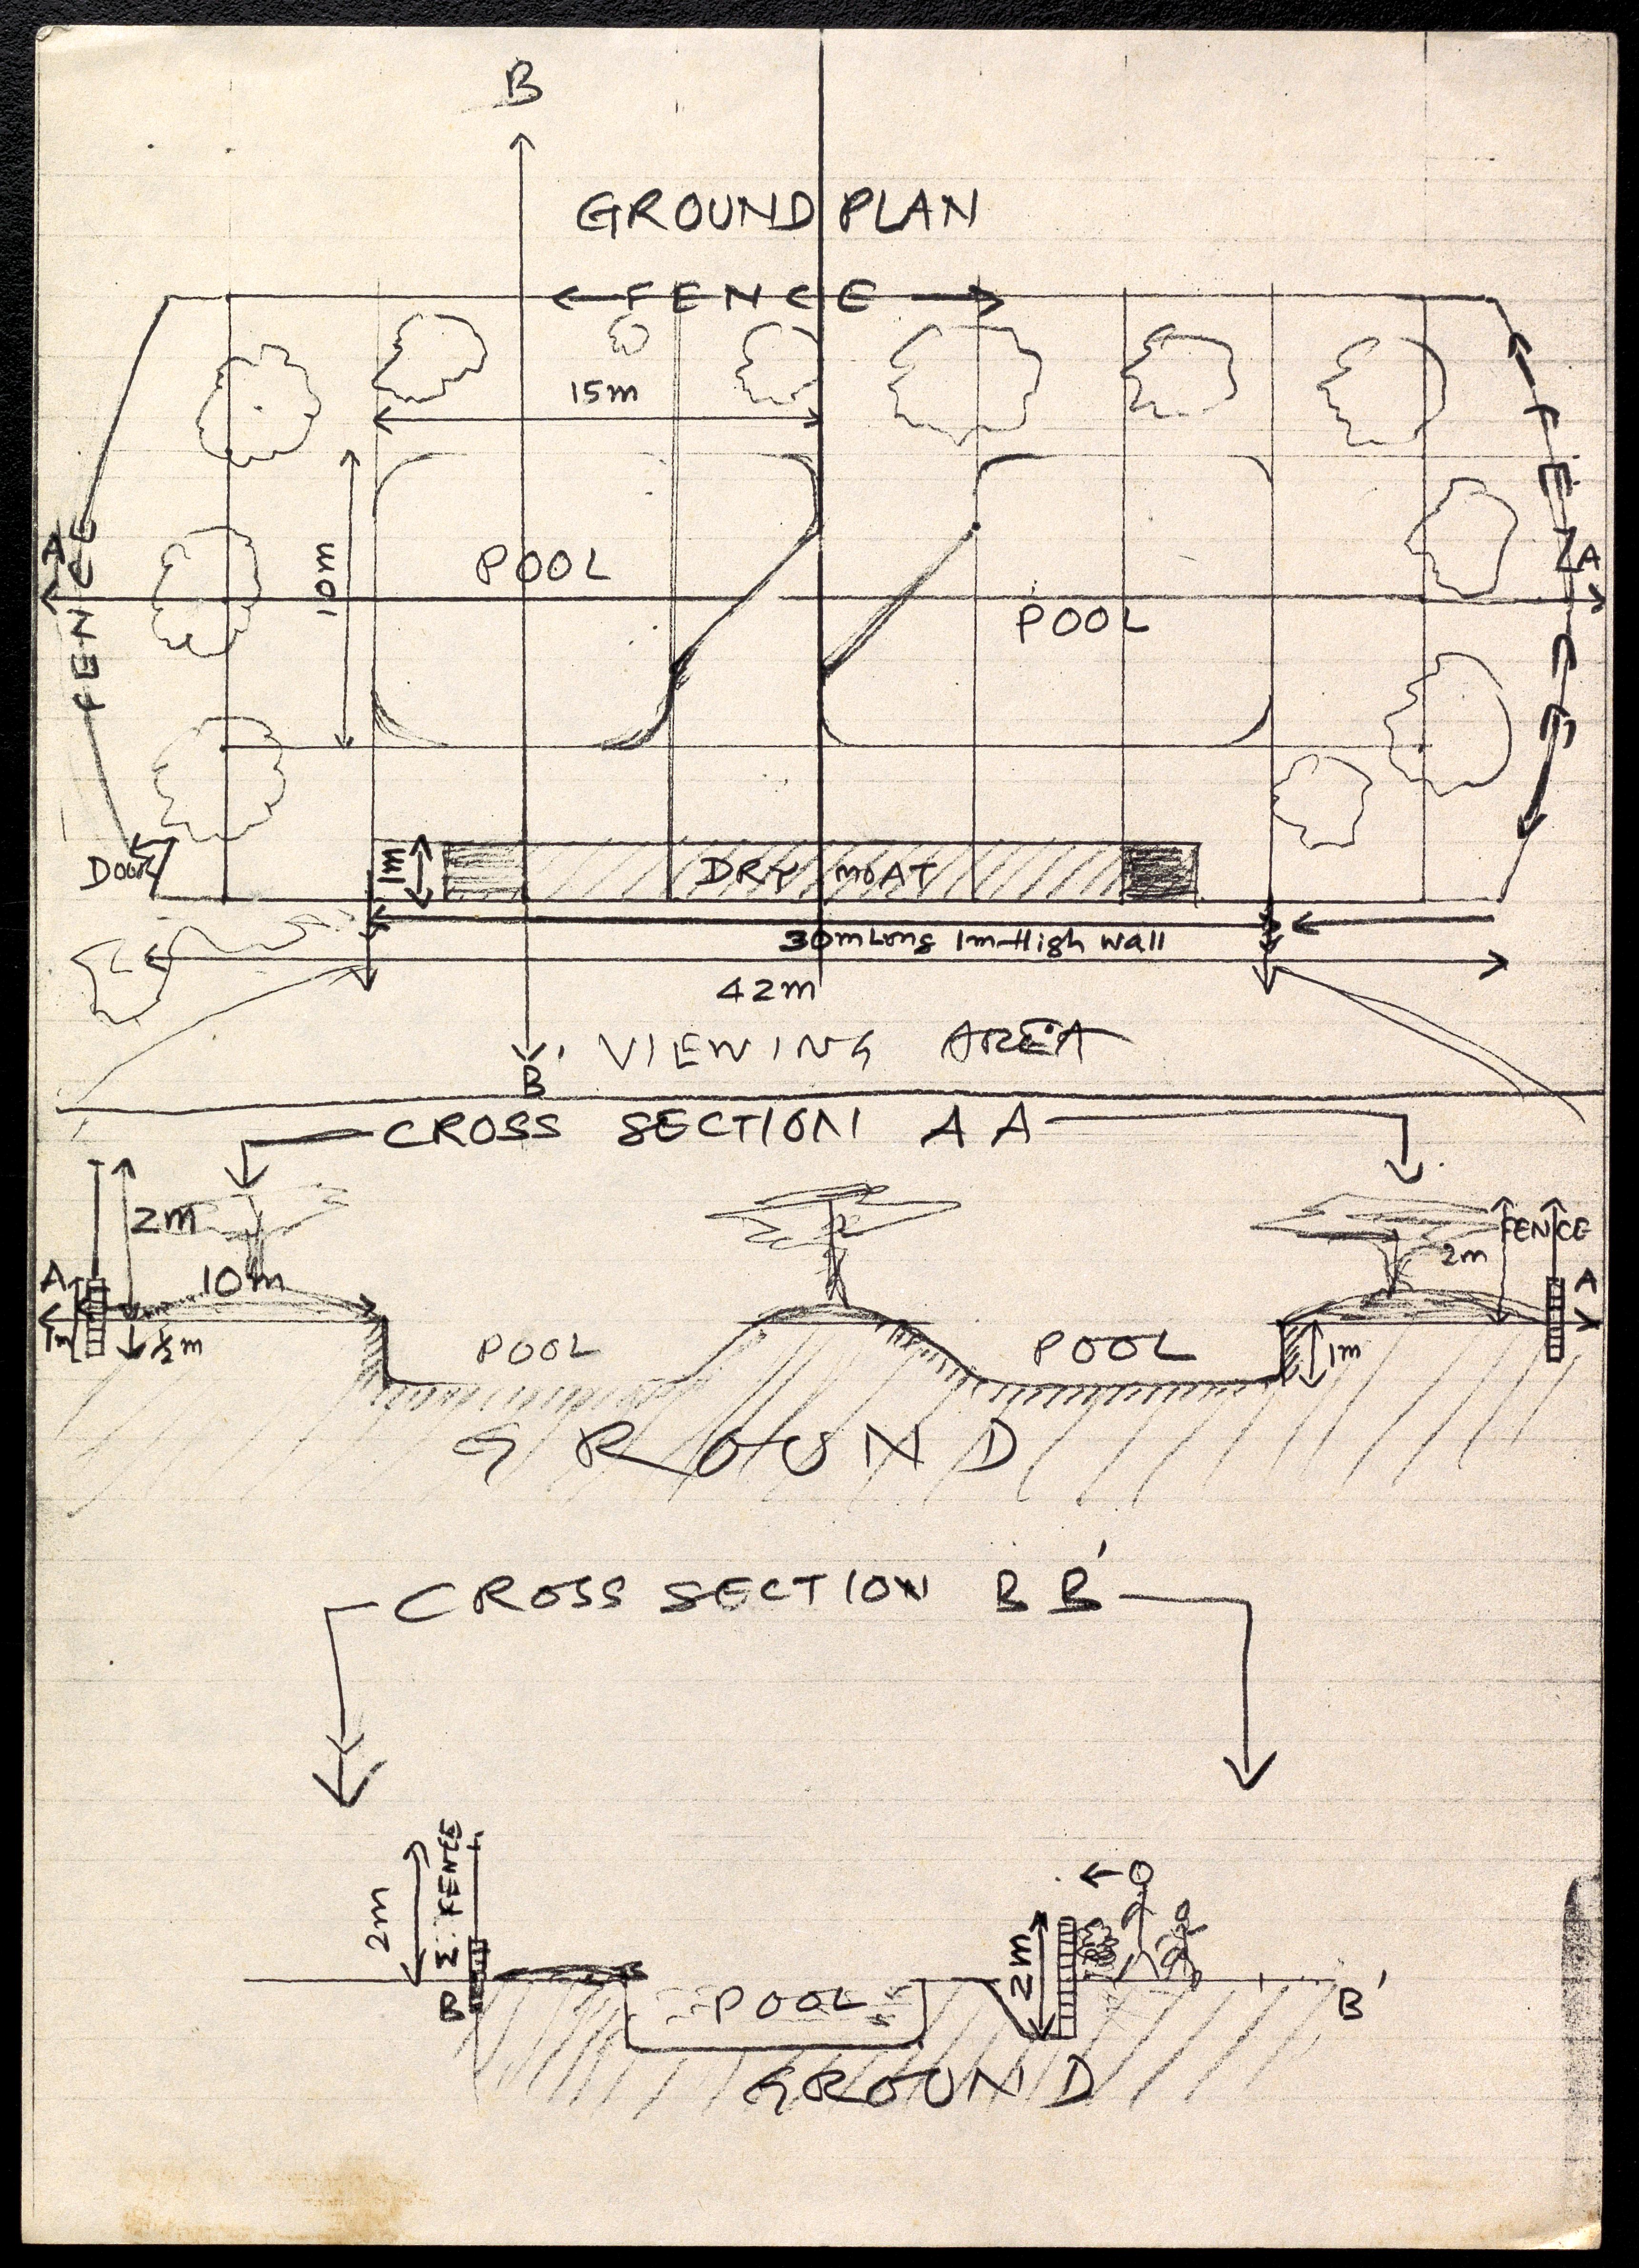 B
GROUND PLAN
FENCE
15m
10m
POOL
POOL
A
FENCE
FENCE
A
DOOR
1m
DRY MOAT
30m Long 1m-High wall
42m
B'
VIEWING AREA
CROSS SECTION A A
2m
10m
A
1m
½m
POOL
POOL
2m
FENCE
A
1m
GROUND
CROSS SECTION B B'
2m
FENCE
B
POOL
2m
B'
GROUND